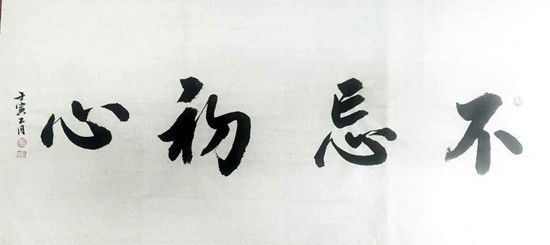 不忘初心
壬寅六月